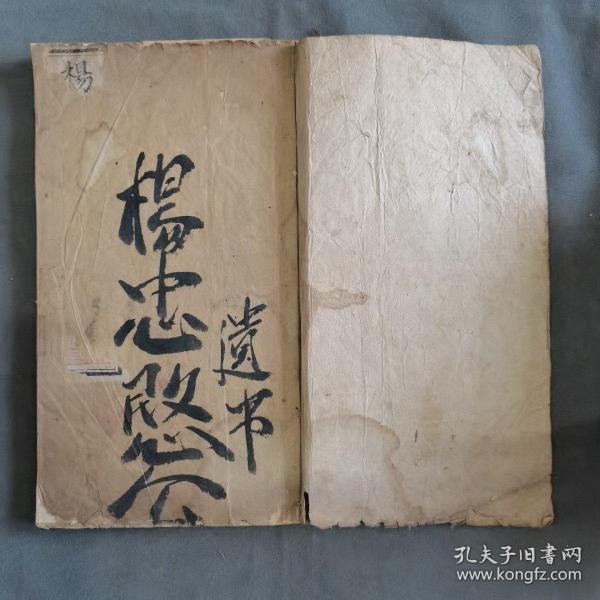 楊
楊忠愍公
遺书
孔夫子旧书网
www.kongfz.com